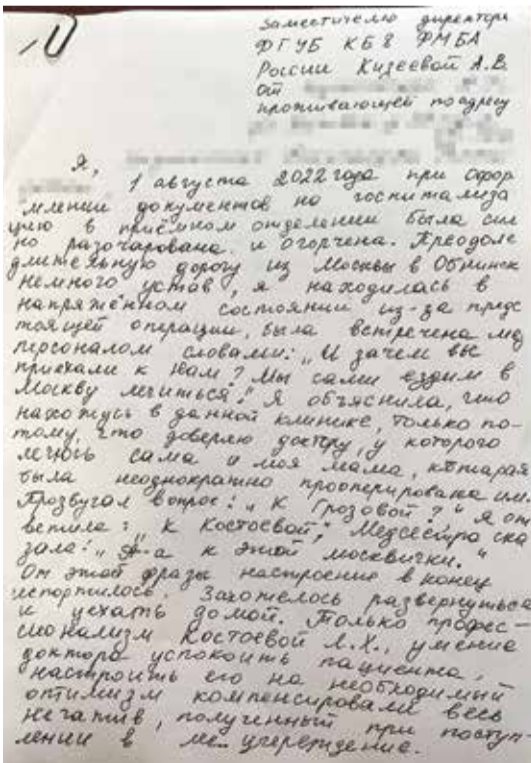 Заместителю директора
ФГУБ КБ 8 ФМБА
России Кизеевой А.В.
от
проживающей по адресу
Я,
1 августа 2022 года при офор
млении документов на госпитализа
цию в приёмном отделении была силь
но разочарована и огорчена. Преодоле
длительную дорогу из Москвы в Обнинск
немного устав, я находилась в
напряжённом состоянии из-за предс
тоящей операции, была встречена мед
персоналом словами: „И зачем вы
приехали к нам? Мы сами ездим в
Москву лечиться." Я объяснила, что
нахожусь в данной клинике, только по-
тому, что доверяю доктору, у которого
лечусь сама и моя мама, которая
была неоднократно прооперирована им.
Прозвучал вопрос: „К Грозовой?" Я от
ветила: „К Костоевой," Медсестра ска
зала: „А-а к этой москвички."
От этой фразы настроение в конец
испортилось. Захотелось развернуться
и уехать домой. Только профес-
сионализм Костоевой Л.Х., умение
доктора успокоить пациента,
настроить его на необходимый
оптимизм компенсировали весь
негатив, полученный при поступ-
лении в ме. учереждение.